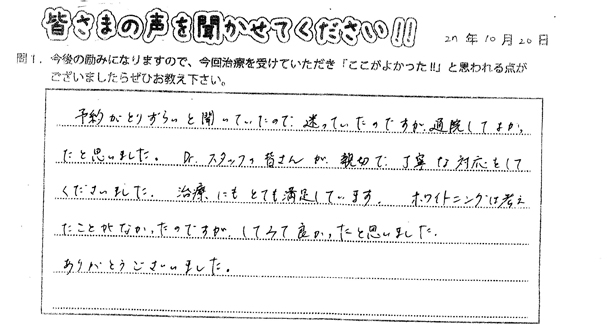 皆さまの声を聞かせてください!!
27年10月20日
問1．今後の励みになりますので、今回治療を受けていただき「ここがよかった!!」と思われる点が
ございましたらぜひお教え下さい。
予約がとりずらいと聞いていたので、迷っていたのですが、通院してよかっ
たと思いました。Dr.スタッフの皆さんが、親切で、丁寧な対応をして
くださいました。治療にもとても満足しています。ホワイトニングは考え
たことがなかったのですが、してみて良かったと思いました。
ありがとうございました。